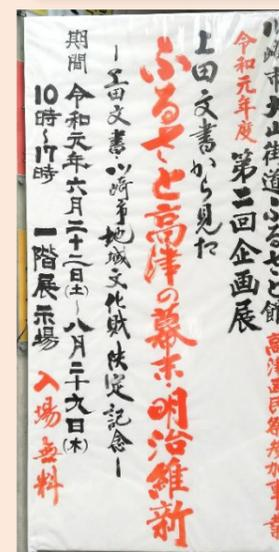 川崎市大山街道ふるさと館
令和元年度 第二回企画展
上田文書から見た
ふるさと高津の幕末・明治維新
ー上田文書・川崎市地域文化財決定記念ー
期間 令和元年六月二十二日(土)~八月二十九日(木)
10時~17時 一階展示場 入場無料